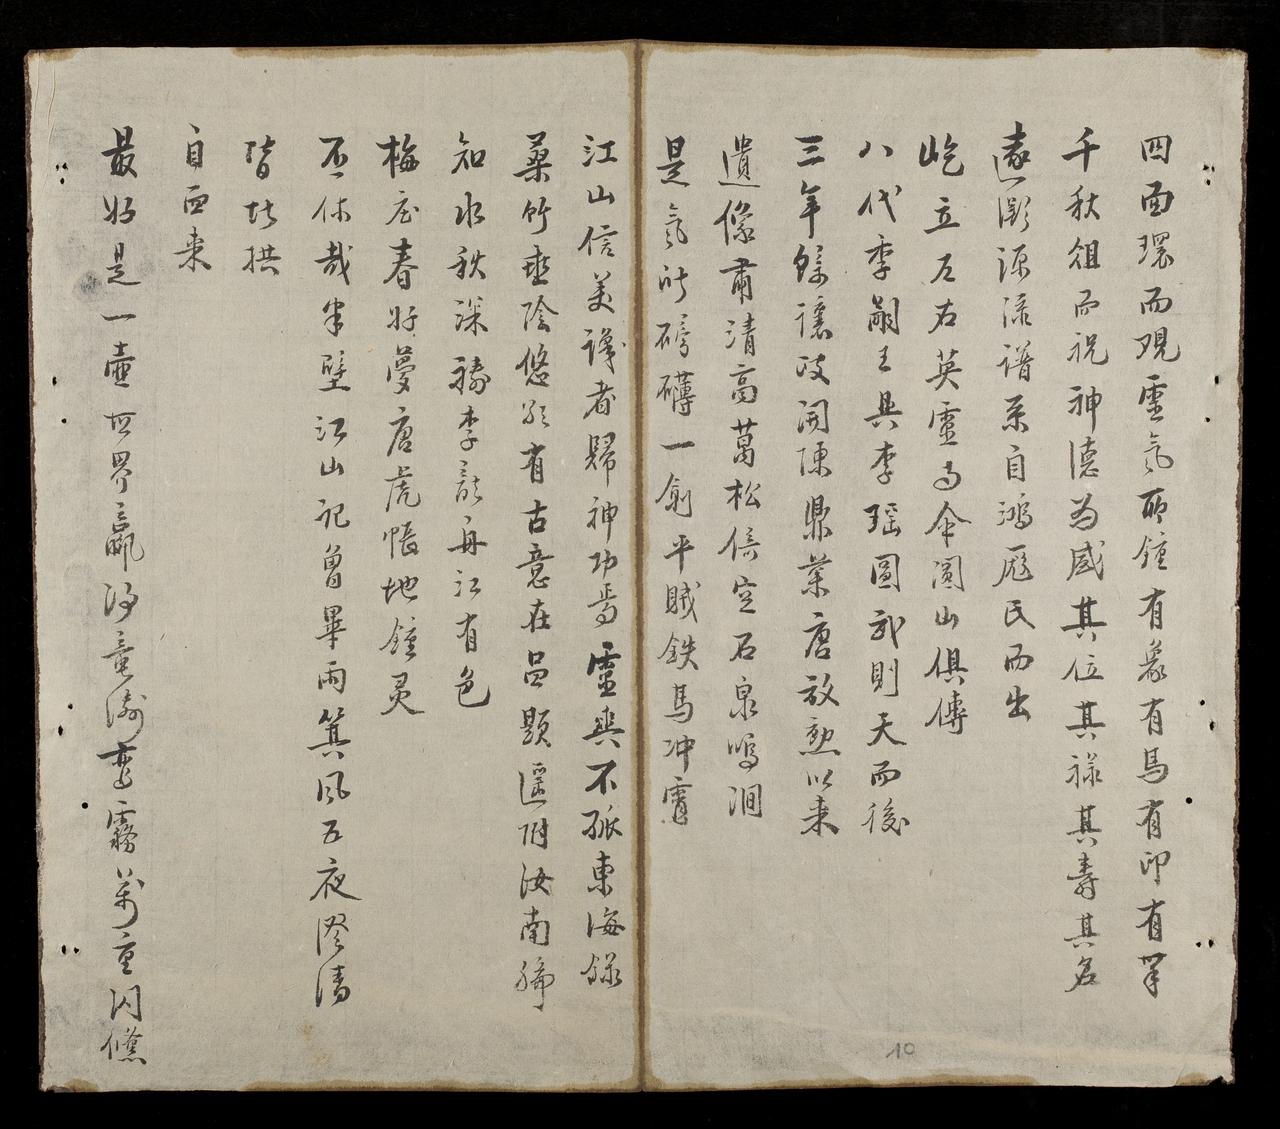 四面環而覌靈氣所鍾有象有馬有印有筆
千秋俎而祝神德為盛其位其祿其壽其名
遠溯源流譜系自鴻厖氏而出
屹立左右英靈与傘圓山俱傳
八代李嗣王與李瑶圓武則天而後
三年餘讓歧開陳鼎業唐放勲以来
遺像肅清高葛松倚空石泉鳴澗
是氣所磅礴一劍平賊鉄馬冲霄
江山信美護者歸神功焉靈與不孤東海錄
藥竹垂陰悠然有古意在品題遥附汝南
知水秋深禱李 舟江有色
梅庄春好夢唐虎帳地鍾灵
丕休哉半壁江山記曾畢雨箕風五夜澄清
皆北拱
自西来
最好是一壺世界贏得毫 霧萬重閃
10